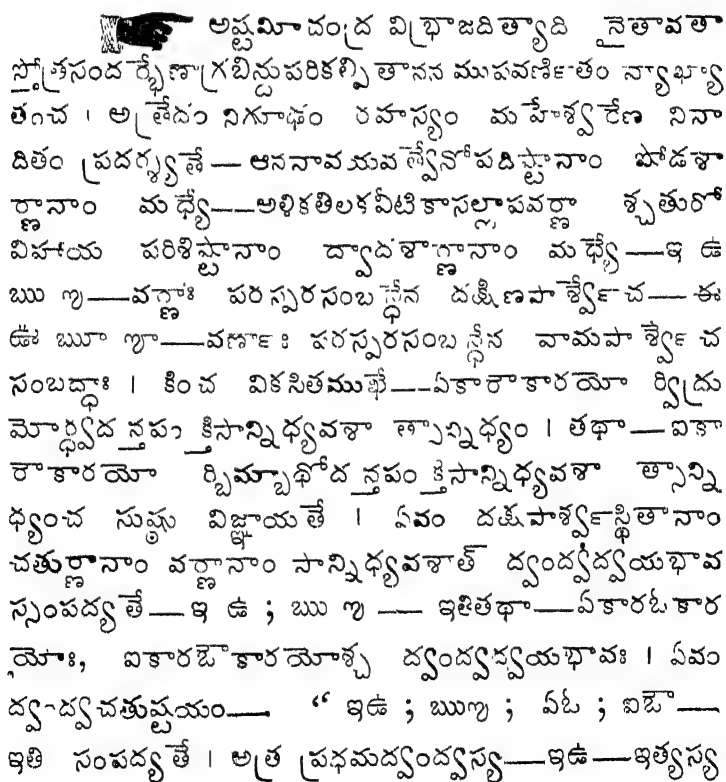 అష్టమీచంద్ర విభ్రాజదిత్యాది నైతావతా
స్తోత్రసందర్భేణాగ్రబిన్దుపరికల్పితానన ముపవర్ణితం వ్యాఖ్యా
తంచ । అత్రేదం నిగూఢం రహస్యం మహేశ్వరేణ నినా
దితం ప్రదర్శ్యతే — ఆననావయవత్వేనోపదిష్టానాం షోడశా
ర్ణానాం మధ్యే——అళికతిలకవీటికాసల్లాపవర్ణా శ్చతురో
విహాయ పరిశిష్టానాం ద్వాదశార్ణానాం మధ్యే—ఇ ఉ
ఋ ఌ—వర్ణాః పరస్పరసంబన్ధేన దక్షిణపార్శ్వే చ—ఈ
ఊ ౠ ౡ—వర్ణాః పరస్పరసంబన్ధేన వామపార్శ్వే చ
సంబద్ధాః । కించ వికసితముఖే——ఏకారౌకారయో ర్విద్రు
మోర్ధ్వదన్తపంక్తిసాన్నిధ్యవశా త్సాన్నిధ్యం । తథా—ఐకా
రౌకారయో ర్బిమ్బాధోదన్తపంక్తిసాన్నిధ్యవశా త్సాన్ని
ధ్యంచ సుష్ఠు విజ్ఞాయతే । ఏవం దక్షపార్శ్వస్థితానాం
చతుర్ణానాం వర్ణానాం సాన్నిధ్యవశాత్ ద్వంద్వద్వయభావ
స్సంపద్యతే—ఇ ఉ ; ఋ ఌ — ఇతితథా—ఏకారఓకార
యోః, ఐకారఔకారయోశ్చ ద్వంద్వద్వయభావః । ఏవం
ద్వంద్వచతుష్టయం— “ ఇఉ ; ఋఌ ; ఏఓ ; ఐఔ—
ఇతి సంపద్యతే । అత్ర ప్రధమద్వంద్వస్య—ఇఉ—ఇత్యస్య